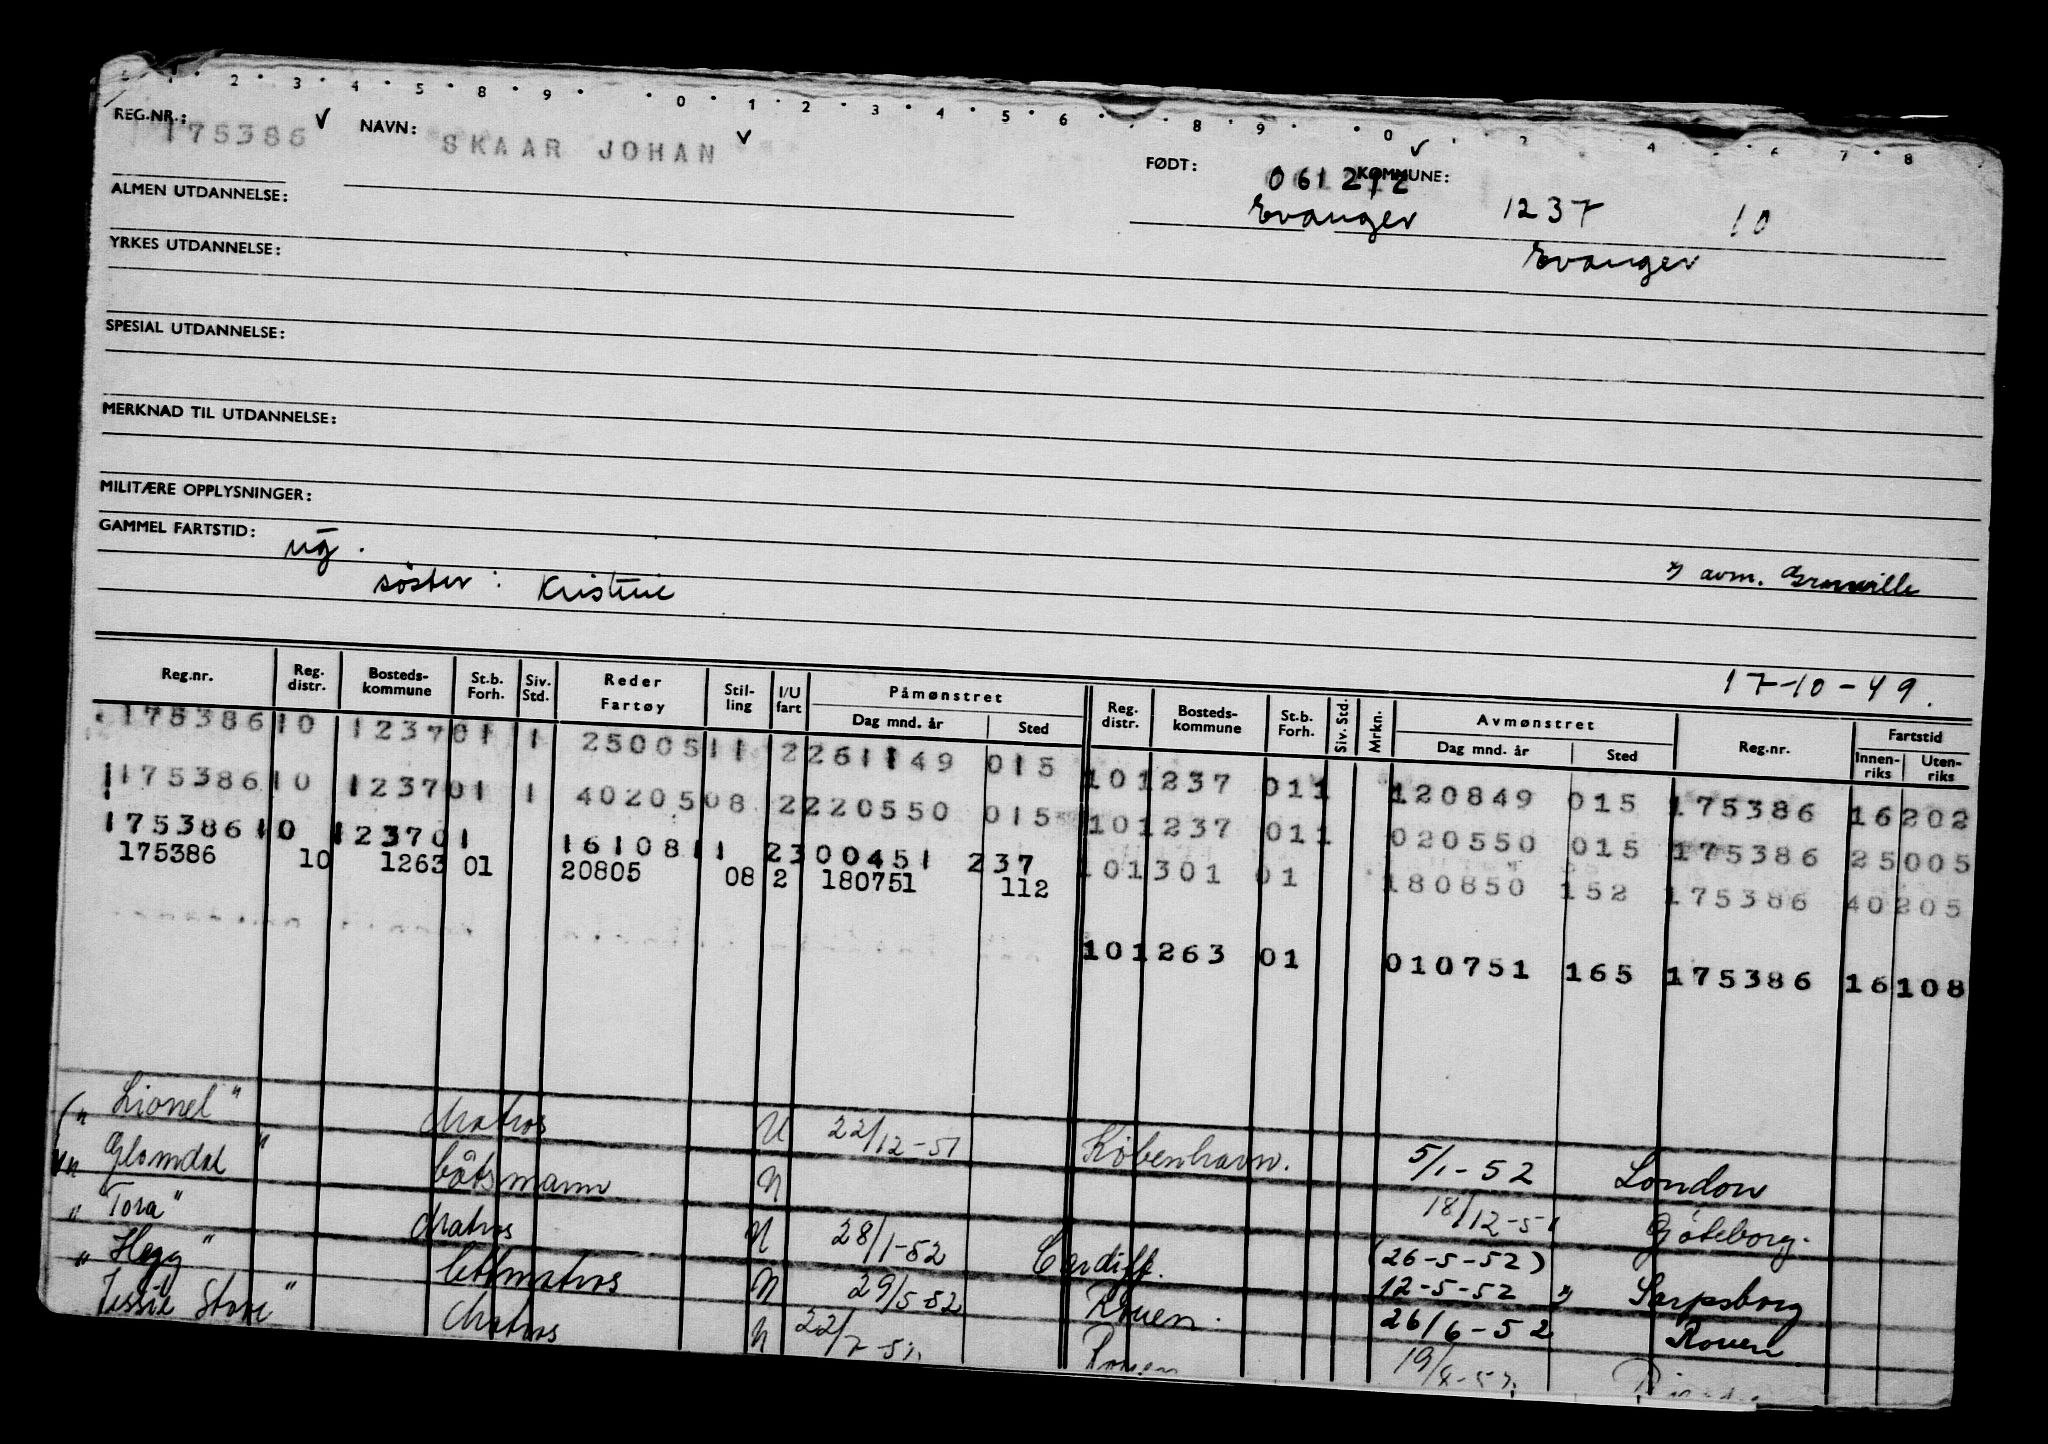 1 · 2 · 3 · 4 · 5 · 8 · 9 · · 0 · 1 · 2 · 3 · 4 · 5 · 6 · · 8 · 9 · · 0 · · 2 4 · 6 · 7 · 8
REG.NR.: 175386 NAVN: SKAAR JOHAN FØDT: 061212 KOMMUNE:
Evanger 1237 10
ALMEN UTDANNELSE:
Evanger
YRKES UTDANNELSE:
SPESIAL UTDANNELSE:
MERKNAD TIL UTDANNELSE:
MILITÆRE OPPLYSNINGER:
GAMMEL FARTSTID: ug.
søster: Kristine
avm. Granville
17-10-49.
Reg.nr. Reg. distr. Bosteds-kommune St.b. Forh. Siv. Std. Reder Fartøy Stil-ling I/U fart Påmønstret Dag mnd. år Sted Reg. distr. Bosteds-kommune St.b. Forh. Siv. Std. Mrkn. Avmønstret Dag mnd. år Sted Reg.nr. Fartstid Innen-riks Uten-riks
175386 10 1237 01 1 25005 11 2 261149 015
101237 011 120849 015 175386 16202
175386 10 1237 01 1 40205 08 2 220550 015
101237 011 020550 015 175386 25005
175386 10 1237 01 16108 11 2 300451 237
101301 01 180850 152 175386 40205
175386 10 1263 01 20805 08 2 180751 112
101263 01 010751 165 175386 16108
"Lionel" Matros U 22/12-51 København. 5/1-52 London
"Glomdal" båtsmann U 18/12-51 Göteborg.
"Tora" Matros U 28/1-52 Cardiff. (26-5-52)
12-5-52 Sarpsborg
"Hegg" lettmatros U 29/5-52 Rouen. 26/6-52 Rouen
Jessie Stove" Matros U 22/7-52 Rouen 19/8-52